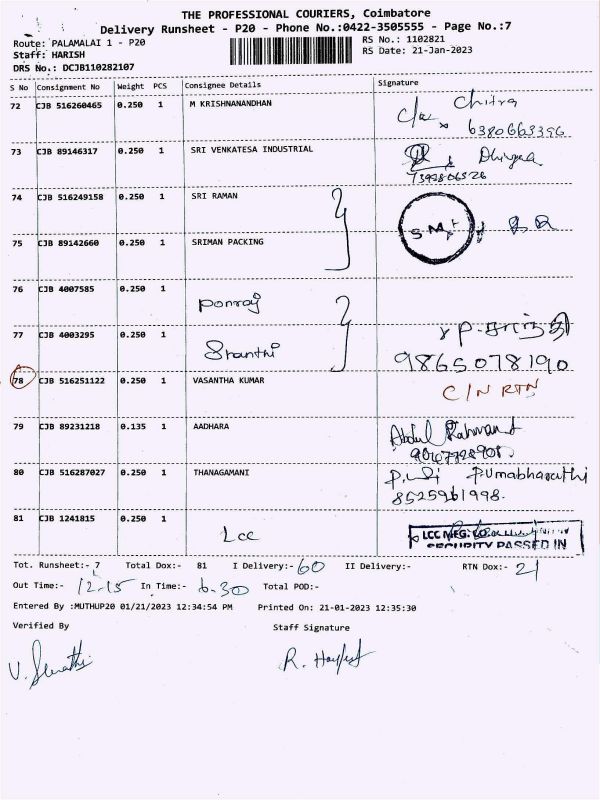 THE PROFESSIONAL COURIERS, Coimbatore
Delivery Runsheet - P20 - Phone No.:0422-3505555 - Page No.:7
Route: PALAMALAI 1 - P20
RS No.: 1102821
Staff: HARISH
RS Date: 21-Jan-2023
DRS No.: DCJB110282107
S No Consignment No Weight PCS Consignee Details Signature
72 CJB 516260465 0.250 1 M KRISHNANANDHAN Chitra
6380663396
73 CJB 89146317 0.250 1 SRI VENKATESA INDUSTRIAL
74 CJB 516249158 0.250 1 SRI RAMAN
75 CJB 89142660 0.250 1 SRIMAN PACKING
76 CJB 4007585 0.250 1 Ponraj
77 CJB 4003295 0.250 1 Shanthi
9865078190
78 CJB 516251122 0.250 1 VASANTHA KUMAR C/N RTN
79 CJB 89231218 0.135 1 AADHARA Abdul Rahman
80 CJB 516287027 0.250 1 THANAGAMANI
8525961998.
81 CJB 1241815 0.250 1 Lcc LCC MFG. CO.
SECURITY PASSED IN
Tot. Runsheet:- 7 Total Dox:- 81 I Delivery:- 60 II Delivery:- RTN Dox:- 21
Out Time:- 12.15 In Time:- 6.30 Total POD:-
Entered By :MUTHUP20 01/21/2023 12:34:54 PM Printed On: 21-01-2023 12:35:30
Verified By Staff Signature